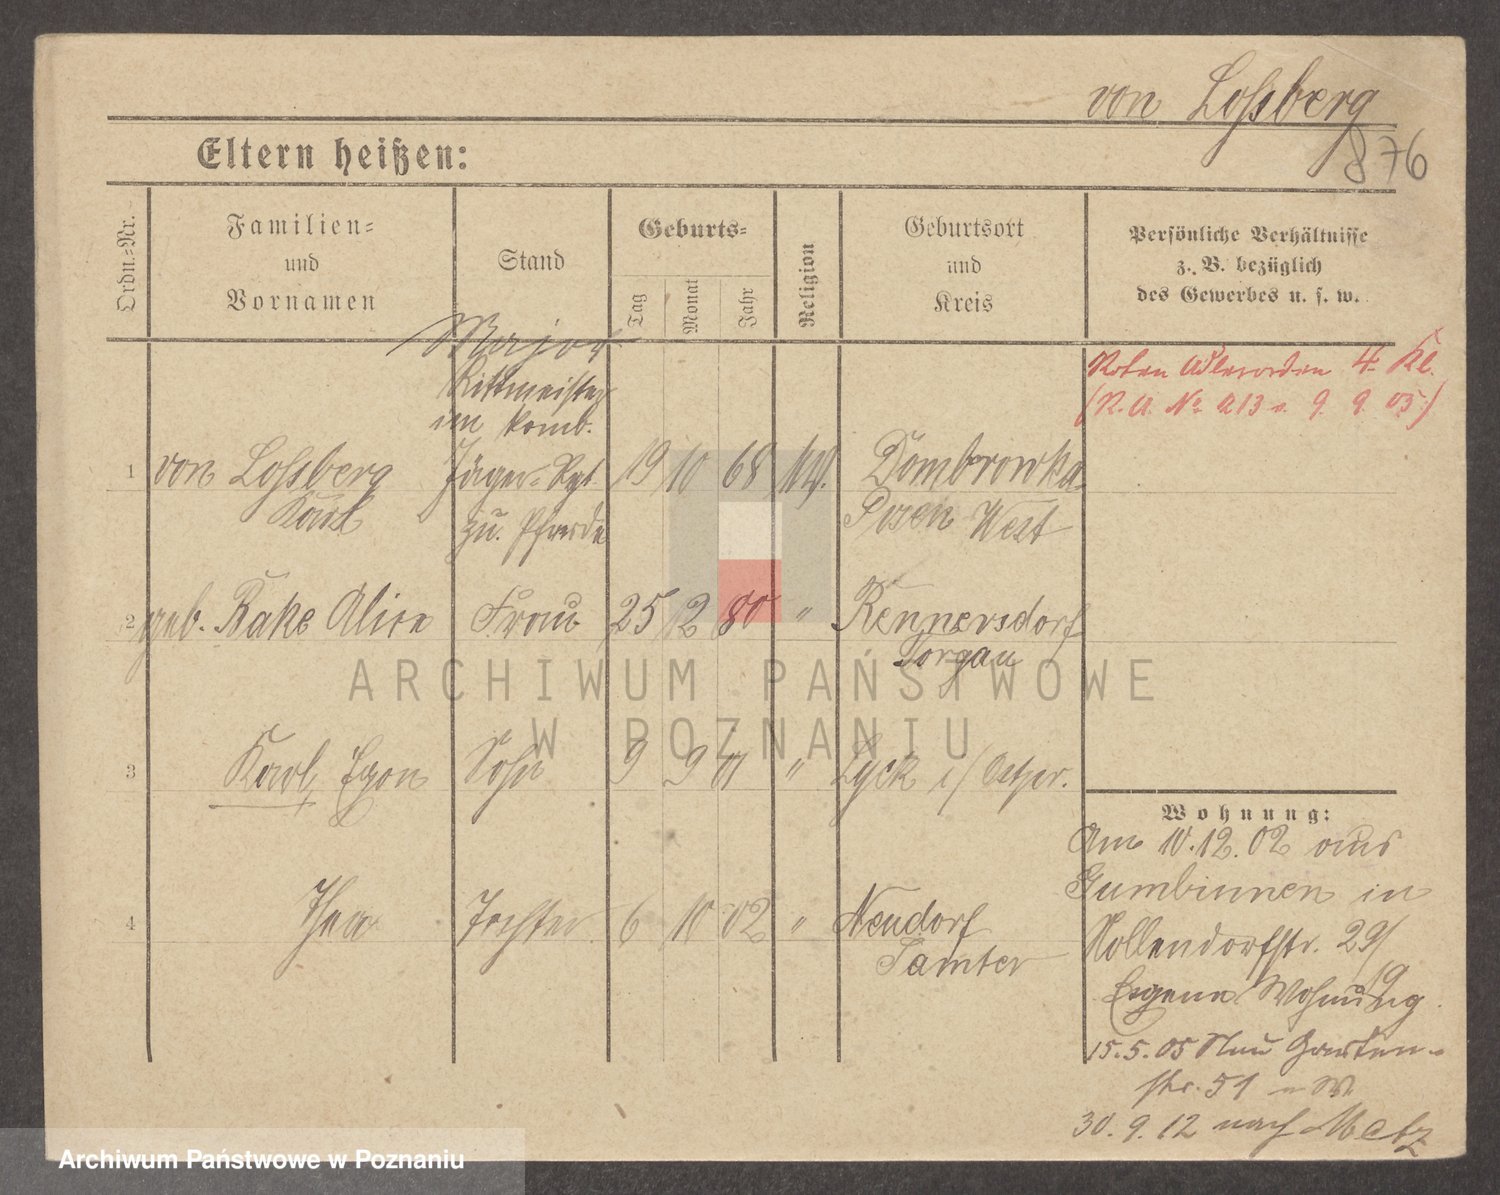 von Loßberg
876
Eltern heißen:
Ordn.-Nr.
Familien-
und
Vornamen
Stand
Geburts-
Tag
Monat
Jahr
Religion
Geburtsort
und
Kreis
Persönliche Verhältnisse
z. B. bezüglich
des Gewerbes u. s. w.
Major
Rittmeister
im komb.
1 von Loßberg Jäger-Rgt. 19 10 68 Dombrowka
Karl zu Pferde Posen West
Roten Adlerorden 4. Kl.
(R. A. No 213 v. 9. 9. 05)
2 geb. Rake Alice Frau 25 2 80 " Rennersdorf
Torgau
3 Karl, Egon Sohn 9 9 01 " Lyck i/ Ostpr.
4 Thea Tochter 6 10 02 " Neudorf
Samter
Wohnung:
Am 10.12.02 aus
Gumbinnen in
Hollendorfstr. 29/
19
Eigene Wohnung.
15.5.05 Neu Garten-
str. 51
30.9.12 nach Metz
ARCHIWUM PAŃSTWOWE
W POZNANIU
Archiwum Państwowe w Poznaniu